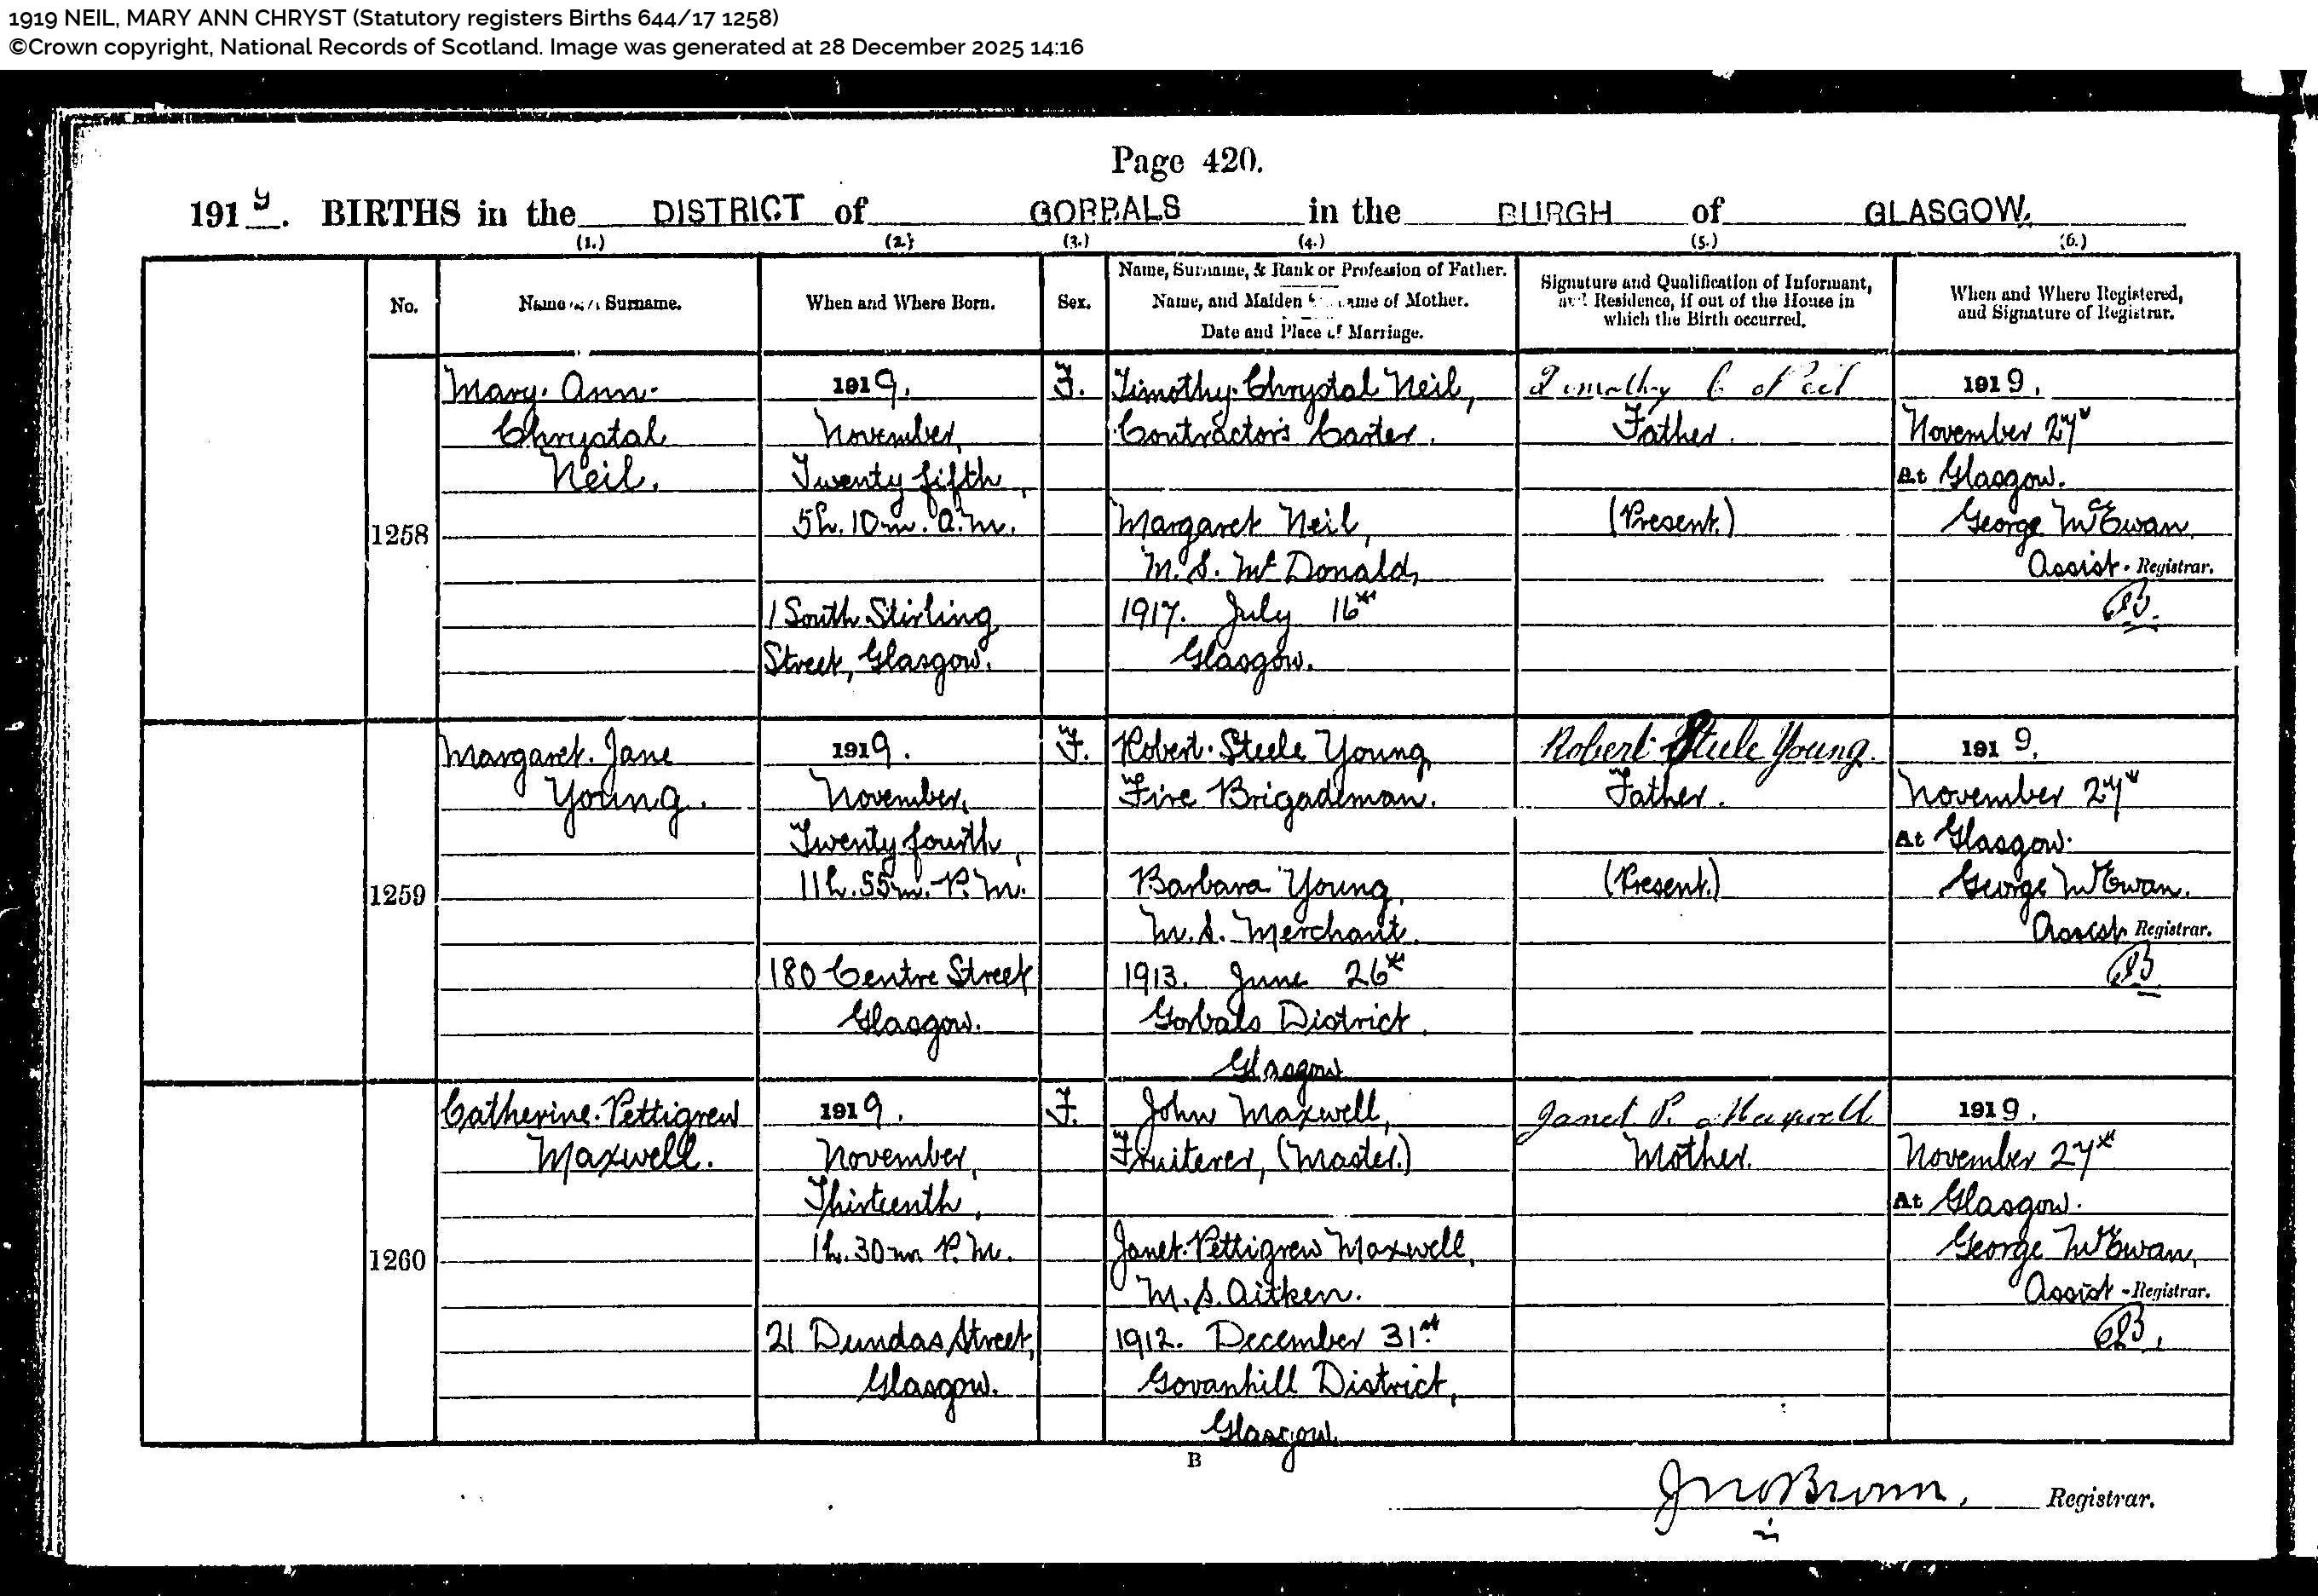 1919 NEIL, MARY ANN CHRYST (Statutory registers Births 644/17 1258)
©Crown copyright, National Records of Scotland. Image was generated at 28 December 2025 14:16
Page 420.
1919. BIRTHS in the DISTRICT of GORBALS in the BURGH of GLASGOW.
(1.) (2.) (3.) (4.) (5.) (6.)
No.
Name and Surname.
When and Where Born.
Sex.
Name, Surname, & Rank or Profession of Father.
Name, and Maiden Surname of Mother.
Date and Place of Marriage.
Signature and Qualification of Informant,
and Residence, if out of the House in
which the Birth occurred.
When and Where Registered,
and Signature of Registrar.
1258
Mary Ann
Chrystal
Neil.
1919.
November,
Twenty fifth,
5h. 10m. A.M.
1 South Stirling
Street, Glasgow.
F.
Timothy Chrystal Neil,
Contractor's Carter.
Margaret Neil,
M.S. McDonald,
1917. July 16th
Glasgow.
Timothy C Neil
Father.
(Present.)
1919.
November 27th
At Glasgow.
George McEwan,
Assist. Registrar.
1259
Margaret Jane
Young.
1919.
November,
Twenty fourth,
11h. 55m. P.M.
180 Centre Street
Glasgow.
F.
Robert Steele Young,
Fire Brigademan.
Barbara Young,
M.S. Merchant.
1913. June 26th
Gorbals District,
Glasgow
Robert Steele Young.
Father.
(Present.)
1919.
November 27th
At Glasgow.
George McEwan.
Assist. Registrar.
1260
Catherine Pettigrew
Maxwell.
1919.
November,
Thirteenth,
1h. 30m. P.M.
21 Dundas Street,
Glasgow.
F.
John Maxwell,
Fruiterer, (Master.)
Janet Pettigrew Maxwell,
M.S. Aitken.
1912. December 31st.
Govanhill District,
Glasgow.
Janet P. Maxwell
Mother.
1919.
November 27th
At Glasgow.
George McEwan,
Assist. Registrar.
B
Jno Brown, Registrar.